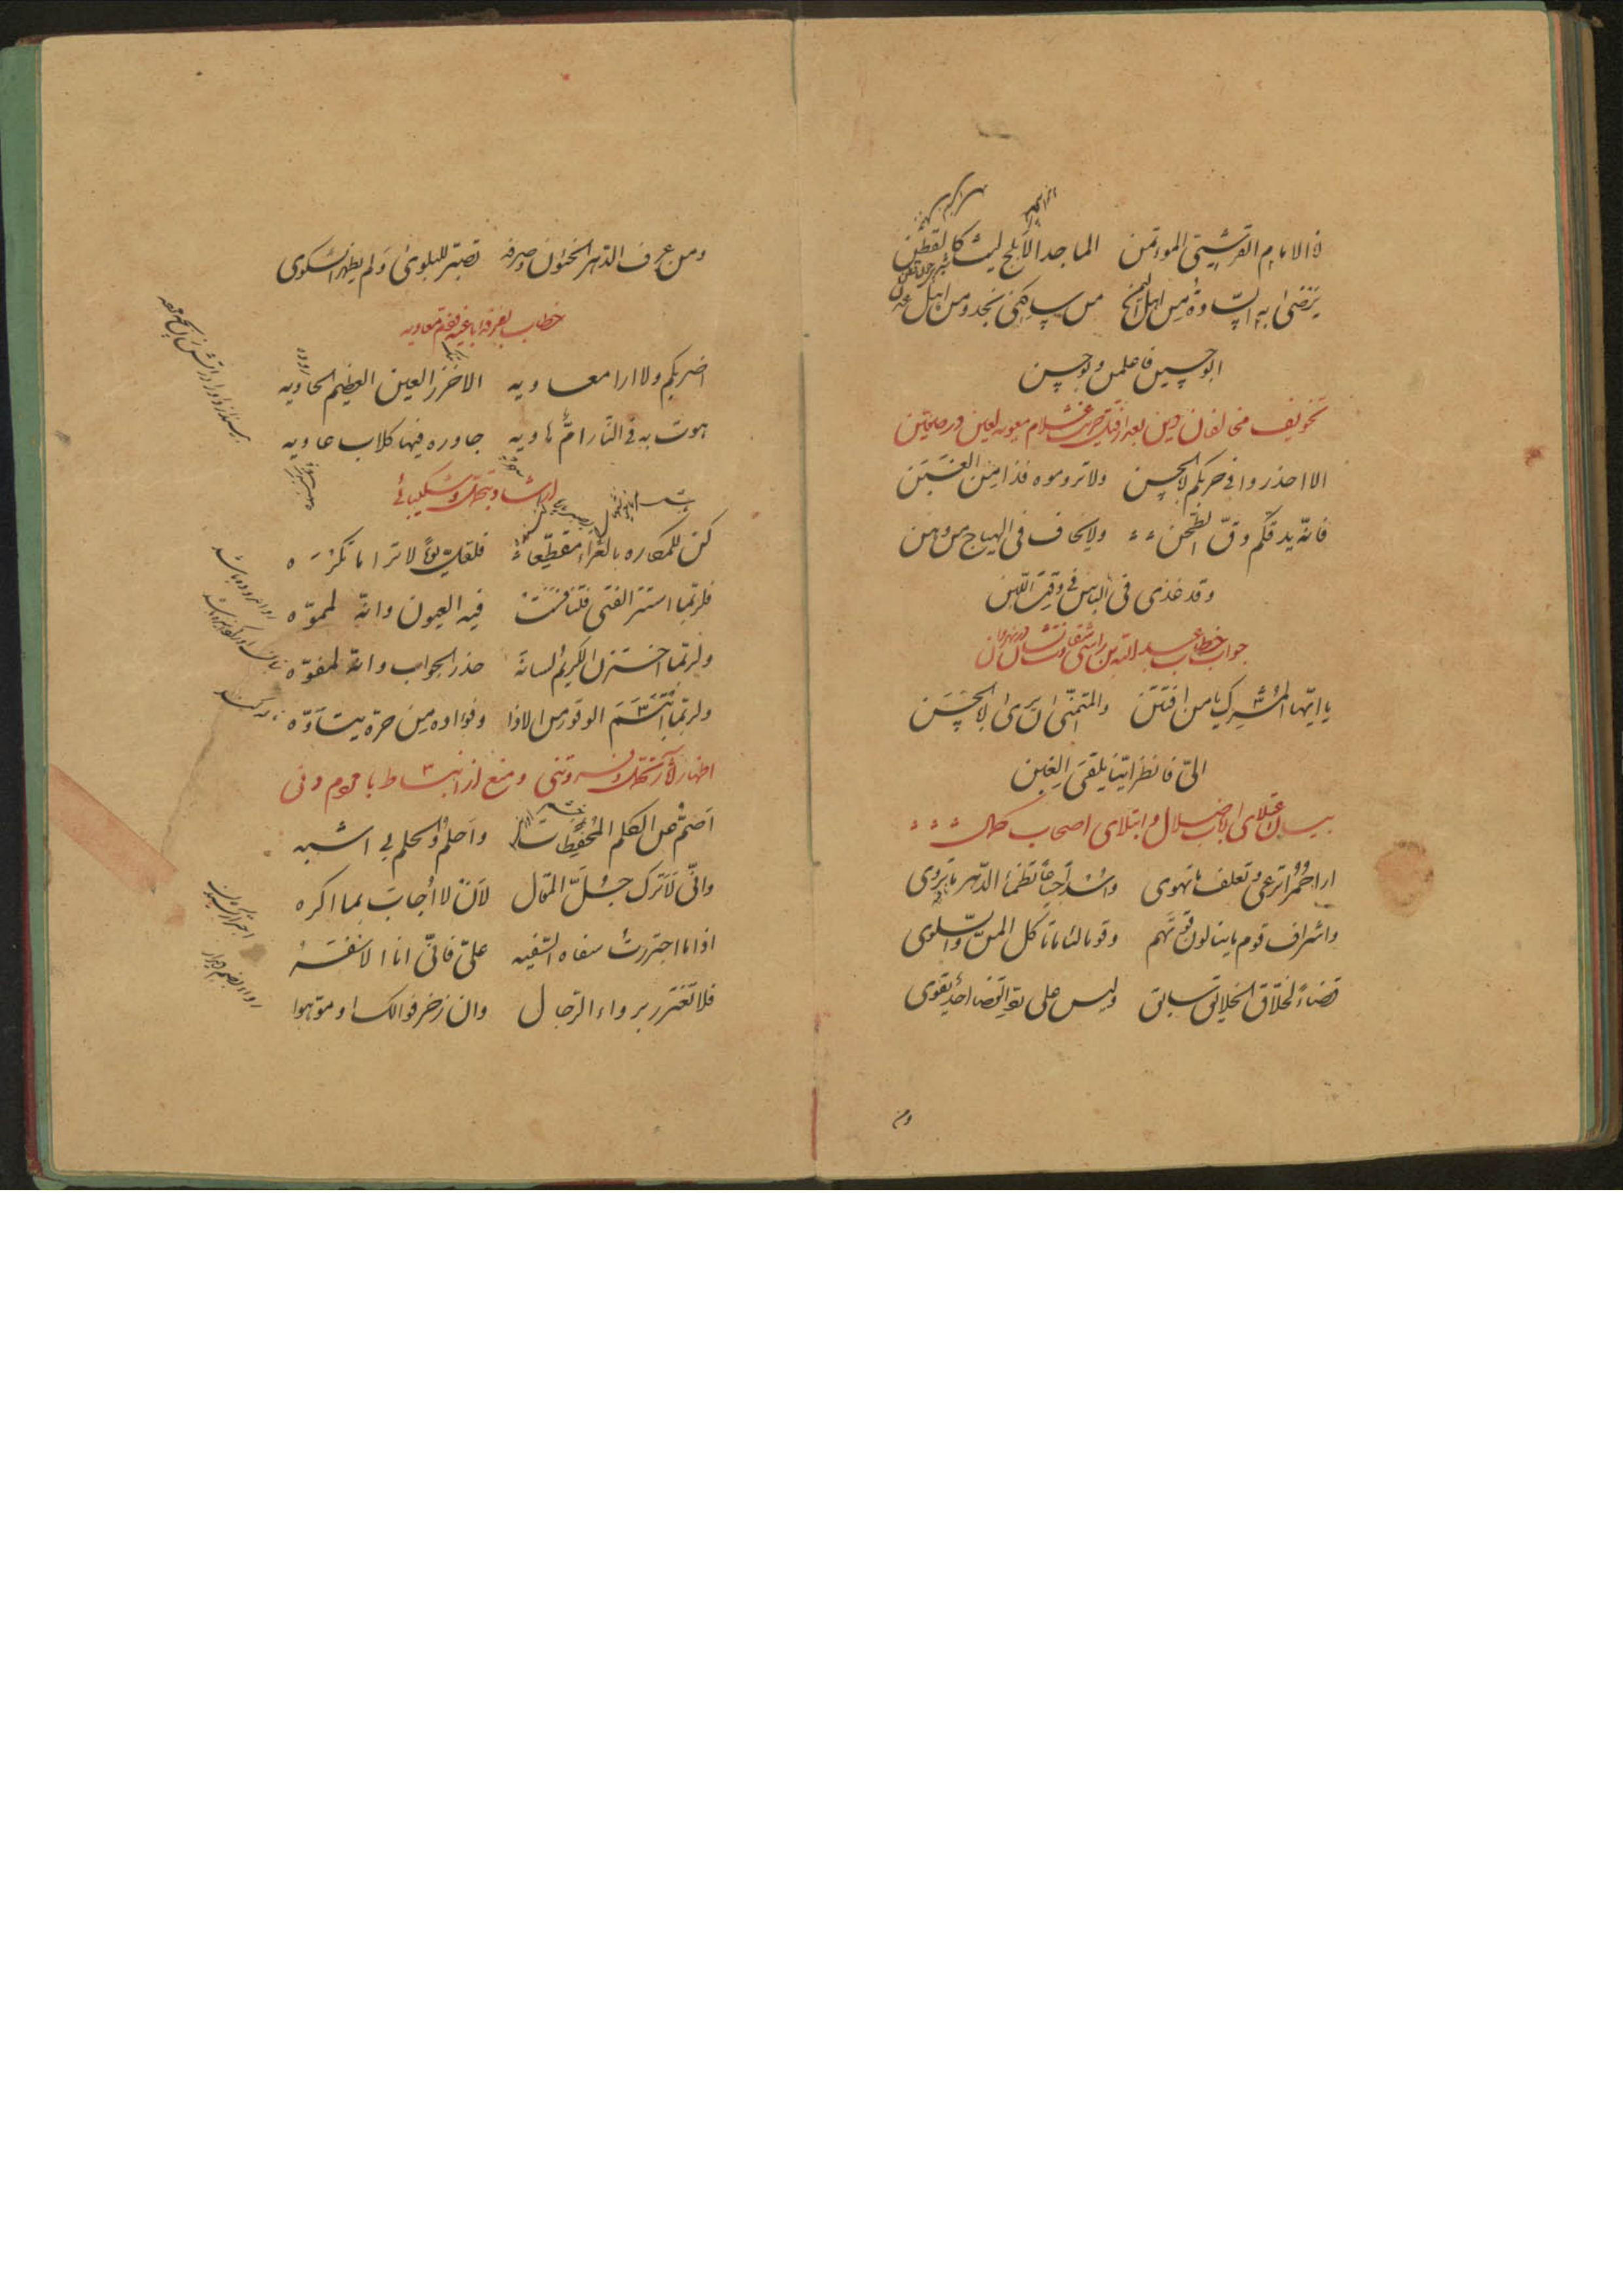 ذا الامام القرشیّ الموءتمن الماجد الابلج لیث کالقطن
یرضی به السّادة من اهل الیمن من ساکنی نجد و من اهل عدن
ابو حسین فاعلمن و بو حسن
تخویف مخالفان دین بعد از قتل حریث غلام معویه لعین در صفین
الا احذروا فی حربکم ابا الحسن ولا تروموه فذا من الغبن
فانّه یدقکم دقّ الطحن ولا یخاف فی الهیاج من و من
وقد غذی فی الباس فی وقت اللبن
جواب خطاب عبد الله بن راسبی در نهروان
یا ایّها المشرک یا من افتتن والمتمنّی ان یری ابا الحسن
الیّ فانظر ایّنا یلقی الغبن
بیان اعتلای ارباب ضلال و ابتلای اصحاب کمال
ارا حمرا ترعی و تعلف ما تهوی واسدا جیاعا تظمأ الدّهر ما تروی
واشراف قوم ما ینالون قوتهم وقوما لئاما تاکل المنّ والسلوی
قضاء لخلاق الخلایق سابق ولیس علی ردّ القضا احد یقوی
ومن
ومن عرف الدهر الخئون وصرفه تصبّر للبلوی ولم یظهر الشکوی
خطاب بفرقه باغیه فئه معاویه
اضربکم ولا ارا معاویه الاخزر العین العظیم الحاویه
هوت به فی النار امّ هاویه جاوره فیها کلاب عاویه
ارشاد بتحمل و شکیبائی
کن للمکاره بالعزاء مقطّعا فلعلّ یوما لا ترا ما تکره
فلربّما استتر الفتی فتنافست فیه العیون وانّه لمموّه
ولربّما اختزن الکریم لسانه حذر الجواب وانّه لمفوّه
ولربّما ابتسم الوقور من الاذا وفواده من حرّه یتاوّه
اظهار تحمل و فروتنی و منع از انبساط با مردم دنی
اصمّ عن الکلم المحفظات واحلم والحلم بی اشبه
وانّی لاترک جلّ المقال لان لا اجاب بما اکره
اذا ما اجتررت سفاه السّفیه علیّ فانّی انا الاسفه
فلا تغترر برواء الرّجال وان زخرفوا لک او موّهوا